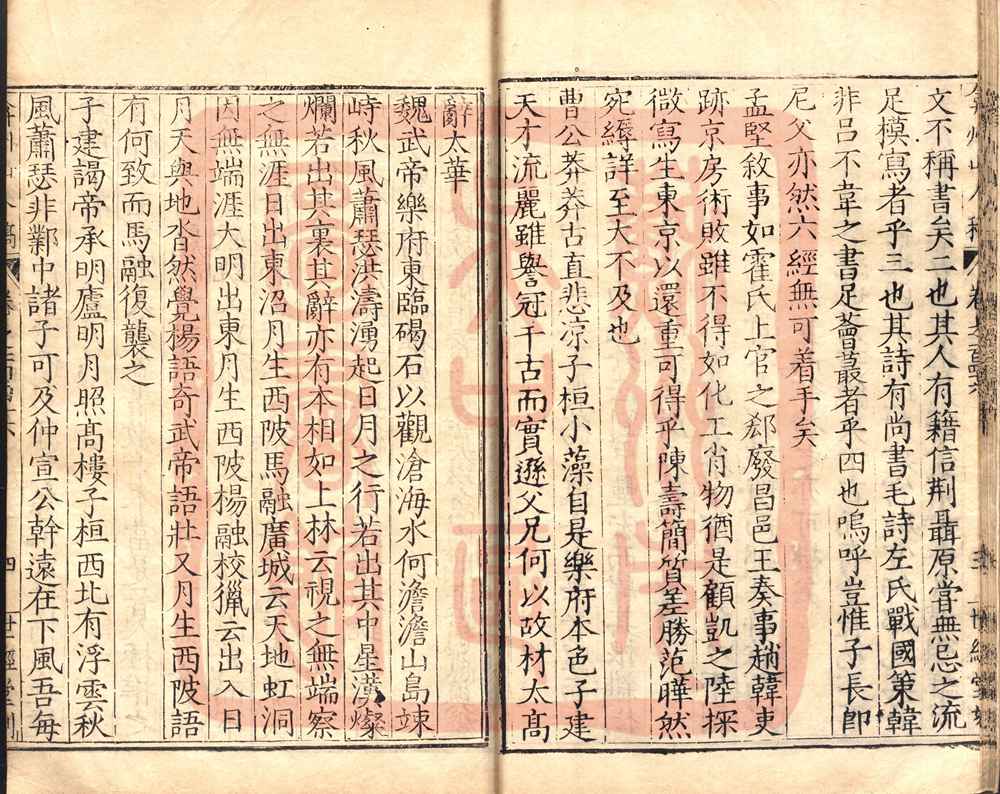 文不稱書矣二也其人有籍信荆聶原嘗無忌之流
足模寫者乎三也其詩有尚書毛詩左氏戰國策韓
非呂不韋之書足薈蕞者乎四也嗚呼豈惟子長即
尼父亦然六經無可着手矣
孟堅敘事如霍氏上官之郄廢昌邑王奏事趙韓吏
跡京房術敗雖不得如化工肖物猶是顧凱之陸探
微寫生東京以還重可得乎陳壽簡質差勝范曄然
宛縟詳至大不及也
曹公莽莽古直悲凉子桓小藻自是樂府本色子建
天才流麗雖譽冠千古而實遜父兄何以故材太高
辭太華
魏武帝樂府東臨碣石以觀滄海水何澹澹山島竦
峙秋風蕭瑟洪濤湧起日月之行若出其中星漢燦
爛若出其裏其辭亦有本相如上林云視之無端察
之無涯日出東沼月生西陂馬融廣城云天地虹洞
因無端涯大明出東月生西陂楊融校獵云出入日
月天與地沓然覺楊語奇武帝語壯又月生西陂語
有何致而馬融復襲之
子建謁帝承明廬明月照高樓子桓西北有浮雲秋
風蕭瑟非鄴中諸子可及仲宣公幹遠在下風吾每
四 世經堂刻